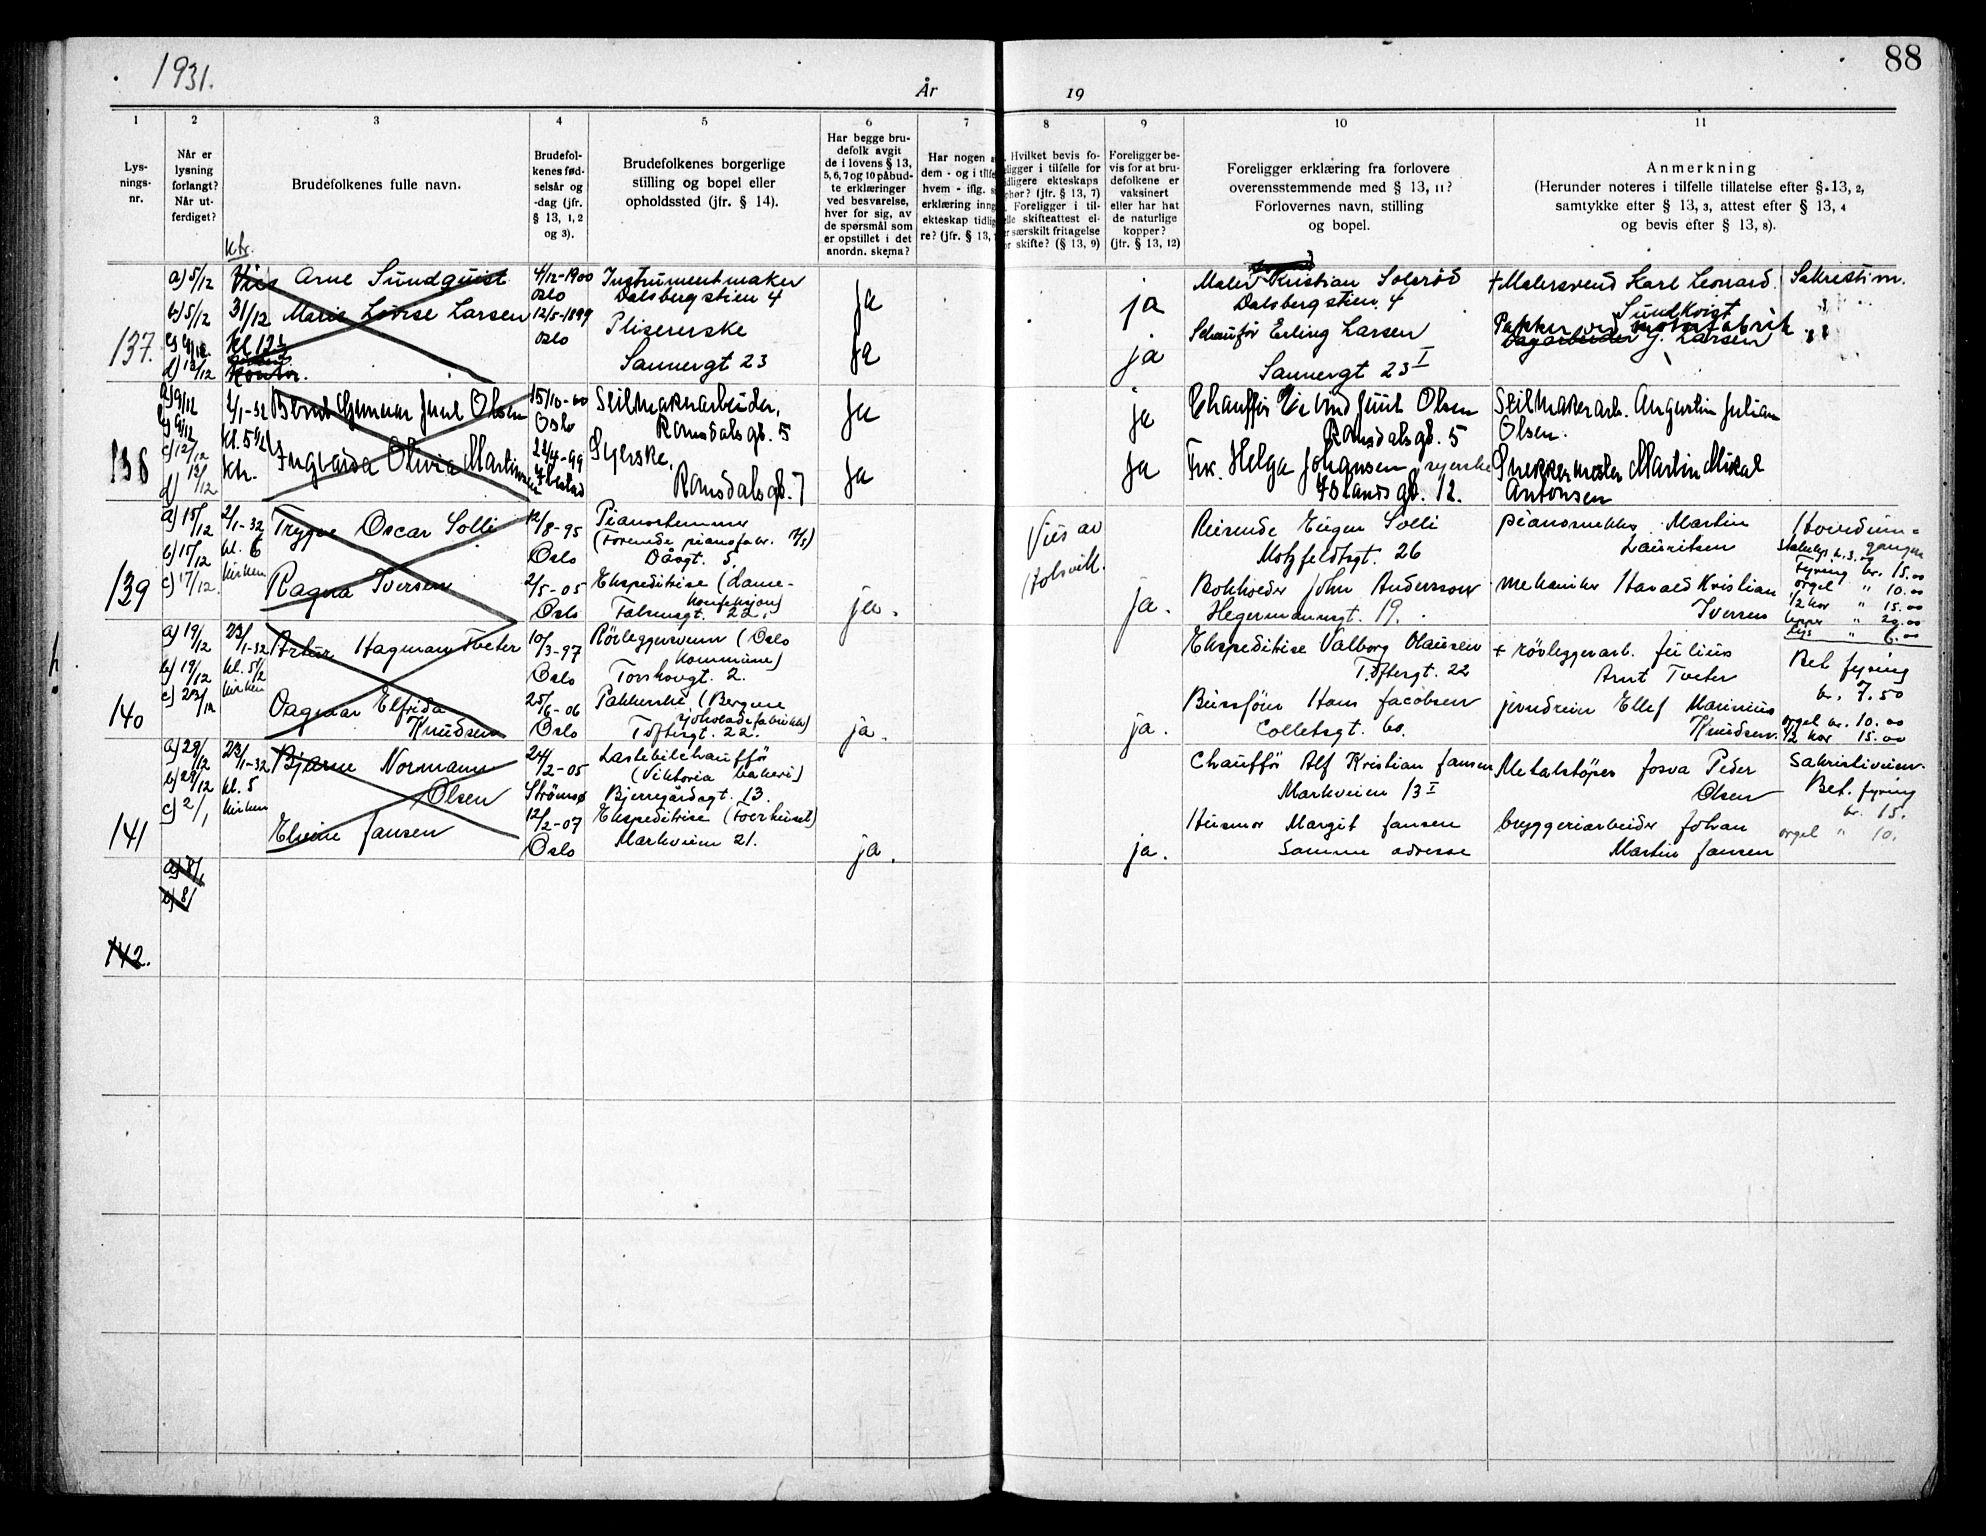 1931.
År
19
88
1
2
3
4
5
6
7
8
9
10
11
Lys-
nings-
nr.
Når er
lysning
forlangt?
Når ut-
ferdiget?
Brudefolkenes fulle navn.
Brudefol-
kenes fød-
selsår og
-dag (jfr.
§ 13, 1, 2
og 3).
Brudefolkenes borgerlige
stilling og bopel eller
opholdssted (jfr. § 14).
Har begge bru-
defolk avgit
de i lovens § 13,
5, 6, 7 og 10 påbud-
te erklæringer
ved besvarelse,
hver for sig, av
de spørsmål som
er opstillet i det
anordn. skema?
Har nogen
dem - og i
hvem - iflg.
erklæring
ekteskap
re? (jfr. § 13,
Hvilket bevis fo-
religger i tilfelle for
tidligere ekteskaps
ophør? (jfr. § 13, 7)
Foreligger i til-
felle skifteattest el-
ler særskilt fritagelse
for skifte? (§ 13, 9)
Foreligger be-
vis for at bru-
defolkene er
vaksinert
eller har hat
de naturlige
kopper?
(jfr. § 13, 12)
Foreligger erklæring fra forlovere
overensstemmende med § 13, 11?
Forlovernes navn, stilling
og bopel.
Anmerkning
(Herunder noteres i tilfelle tillatelse efter § 13, 2,
samtykke efter § 13, 3, attest efter § 13, 4
og bevis efter § 13, 8).
ktr.
137.
a) 5/12
b) 5/12
d) 12/12
31/12
Kontor.
Arne Sundquist
Marie Lovise Larsen
4/12-1900
Oslo
12/5-1899
Oslo
Instrumentmaker
Dalsbergstien 4
Plisererske
Sannergt 23
Ja
Ja
ja
ja
Maler Kristian Solsrød
Dalsbergstien. 4
Schaufør Erling Larsen
Sannergt 23 I
+ Malersvend Karl Leonard
Sundkvist
J. Larsen
Sakrestim.
138
a) 9/12
b) 9/12
c) 12/12
d) 12/12
2/1-32
kl. 5 1/2
ktr.
Bernt Gunnar Juul Olsen
Ingvarda Olivia Martinsen
15/10-00
Oslo
22/4-99
Seilmakerarbeider,
Romsdalsgt. 5
Syerske,
Romsdalsgt. 7
Ja
Ja
ja
Ja
Chauffør Eivind Juul Olsen
Romsdalsgt. 5
Frk. Helga Johansen syerske
Islandsgt. 12.
Seilmakerarb. Augustin Julian
Olsen.
Snekkermester Martin Mikal
Antonsen
139
a) 15/12
b) 15/12
c) 17/12
2/1-32
kl. 6
kirken
Trygve Oscar Solli
Ragna Iversen
12/8-95
Oslo
2/5-05
Oslo
Pianostemmer
(Forende pianofabr.
Dåsgt. 5.
Ekspeditrise (Dame-
konfeksjon)
Falsensgt. 22.
ja.
Vies av
Holsvill.
ja.
Reisende Eugen Solli
Motzfeldtsgt. 26
Bokholder John Anderssen
Hegermannsgt. 19.
pianosnekker Martin
Lauritsen
mekaniker Harald Kristian
Iversen
Hovedinn-
gangen
Fyring kr. 15.00
orgel " 10.00
1/2 kor " 15.00
tepper " 20.00
Lys " 6.00
140
a) 19/12
b) 19/12
c) 23/12
23/1-32
kl. 5 1/2
kirken
Artur Hagman Tveter
Dagmar Elfrida
Knudsen
10/3-97
Oslo
25/6-06
Oslo
Rørleggersvenn (Oslo
Kommune)
Torshovgt. 2.
Pakkerske (Bergene
sjokoladefabrikk)
Toftesgt. 22.
ja.
ja.
Ekspeditrise Valborg Clausen
Toftesgt. 22
Hans Jacobsen
Colletsgt. 60.
+ rørleggerarb. Julius
Arnt Tveter
jerndreier Ellef Marinius
Knudsen.
Bet. fyring
kr. 7.50
orgel kr. 10.00
1/2 kor 15.00
141
a) 29/12
b) 29/12
c) 2/1
23/1-32
kl. 5
kirken
Bjarne Normann
Olsen
Elvine Jansen
24/2-05
Strømsø
12/2-07
Oslo
Lastebilchauffør
(Viktoria bakeri)
Bjerregårdsgt. 13.
Ekspeditrise
Markveien 21.
ja.
ja.
Chauffør Alf Kristian Jansen
Markveien 13 I
Husmor Margit Jansen
Samme adresse
Metalstøper Josva Peder
Olsen
bryggeriarbeider Johan
Martin Jansen
Sakristiveien.
Bet. fyring
kr. 15.
orgel " 10.
a) 8/1
b) 8/1
142.